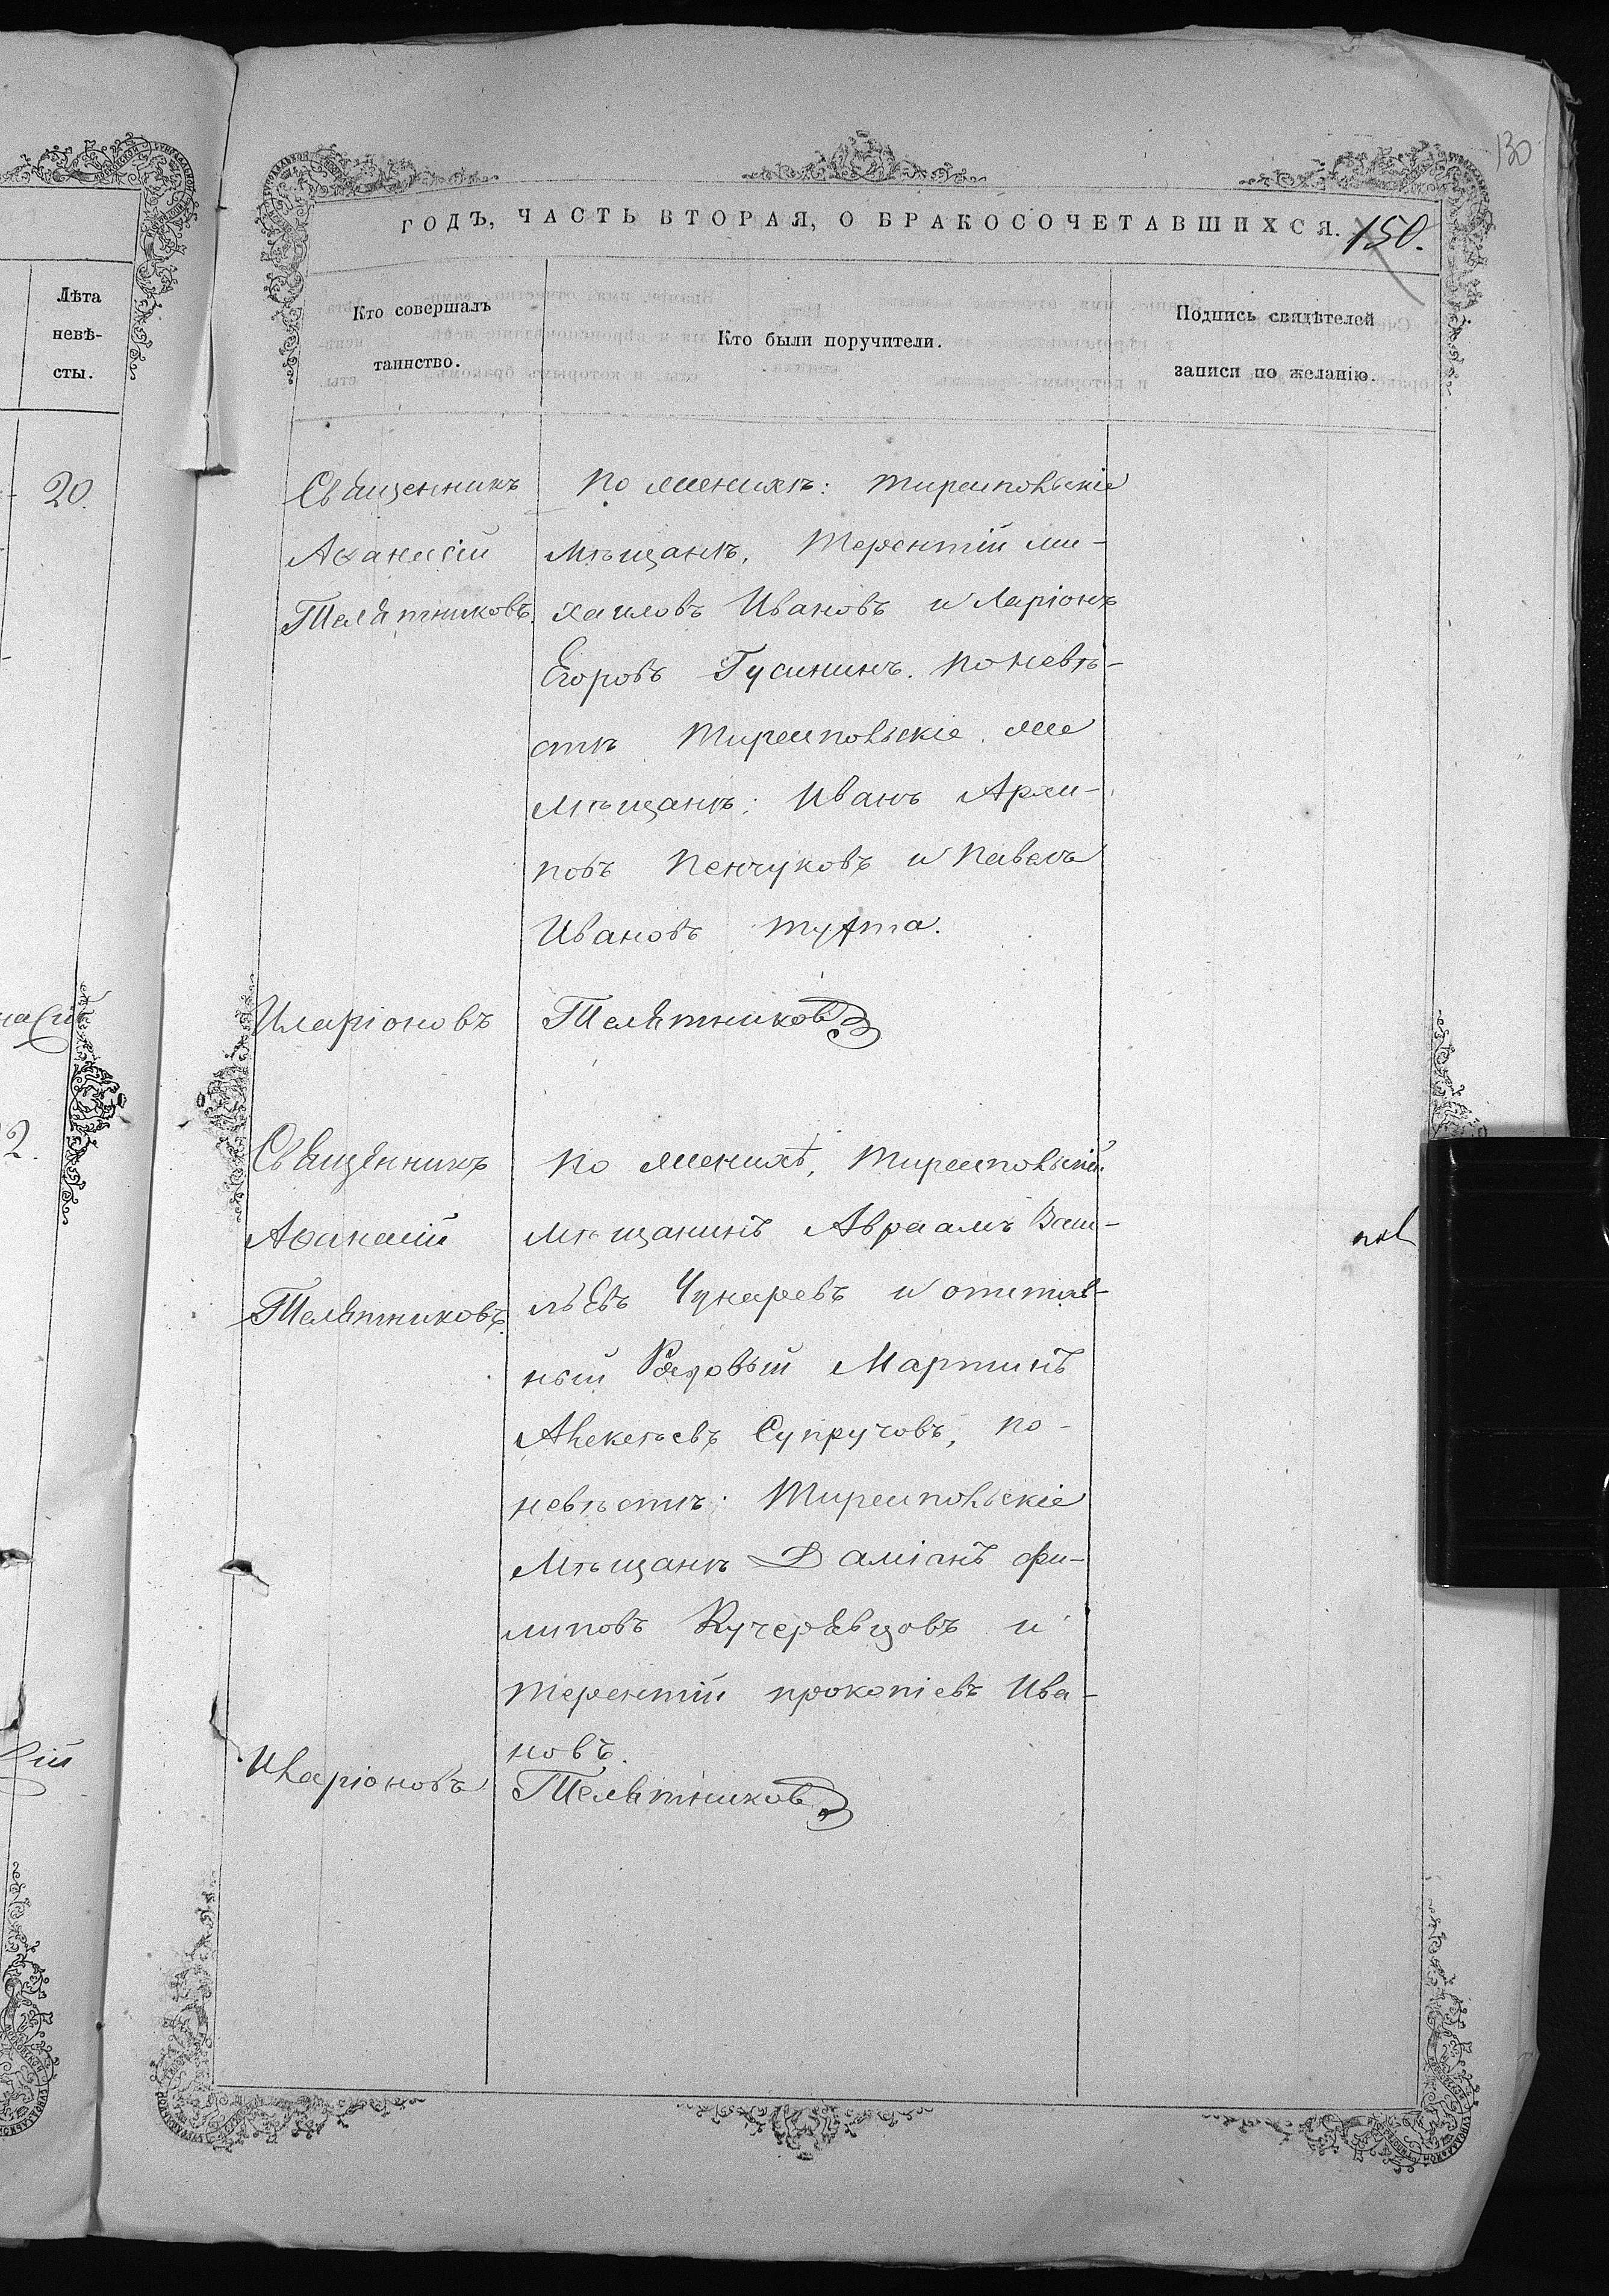 130
ГОДЪ, ЧАСТЬ ВТОРАЯ, О БРАКОСОЧЕТАВШИХСЯ.
150.
Лѣта
невѣ-
сты.
20.
2.
Кто совершалъ
таинство.
Кто были поручители.
Подпись свидѣтелей
записи по желанію.
Священникъ
Аѳанасій
Телятниковъ.
По женихѣ: тираспольскіе
мѣщанѣ, Терентій ми-
хаиловъ Ивановъ и Ларіонъ
Егоровъ Гусининъ. по невѣ-
стѣ Тираспольскіе же
мѣщанѣ: Иванъ Архи-
повъ Пенчуковъ и Павелъ
Ивановъ
Иларіоновъ Телятниковъ
Священникъ
Аѳанасій
Телятниковъ.
По женихѣ, Тираспольскій
мѣщанинъ Авраамъ Васи-
льевъ Чукаревъ и отстав-
ный Рядовый Мартинъ
Алексѣевъ Супручовъ, по
невѣстѣ: Тираспольскіе
мѣщанѣ Даміанъ фи-
липовъ Кучерявцовъ и
терентій прокопіевъ Ива-
новъ.
Иларіоновъ Телятниковъ